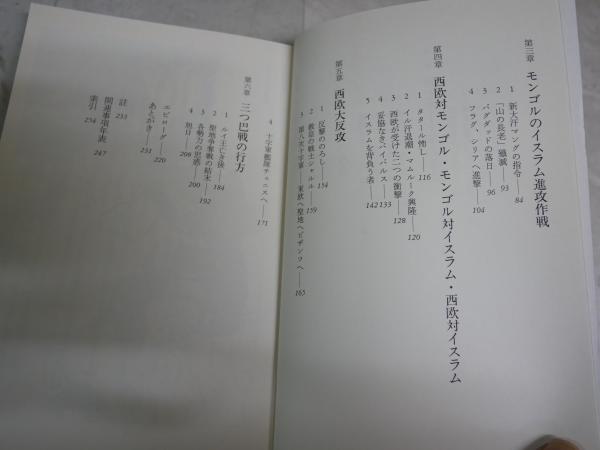 第三章 モンゴルのイスラム進攻作戦
1 新大汗マングの指令――84
2 「山の長老」殲滅――93
3 バグダッドの落日――96
4 フラグ、シリアへ進撃――104
第四章 西欧対モンゴル・モンゴル対イスラム・西欧対イスラム
1 タタール怖し――116
2 イル汗退潮・マムルーク興隆――120
3 西欧が受けた二つの衝撃――128
4 妥協なきバイバルス――133
5 イスラムを背負う者――142
第五章 西欧大反攻
1 反撃ののろし――154
2 教皇の戦士シャルル――159
3 第八次十字軍――東欧へ聖地へビザンツへ――165
4 十字軍艦隊チュニスへ――171
第六章 三つ巴戦の行方
1 ルイ王亡き後――184
2 聖地争奪戦の結末――192
3 各勢力の思惑――200
4 旭日――208
エピローグ――220
あとがき――231
註――233
関連事項年表――247
索引――254